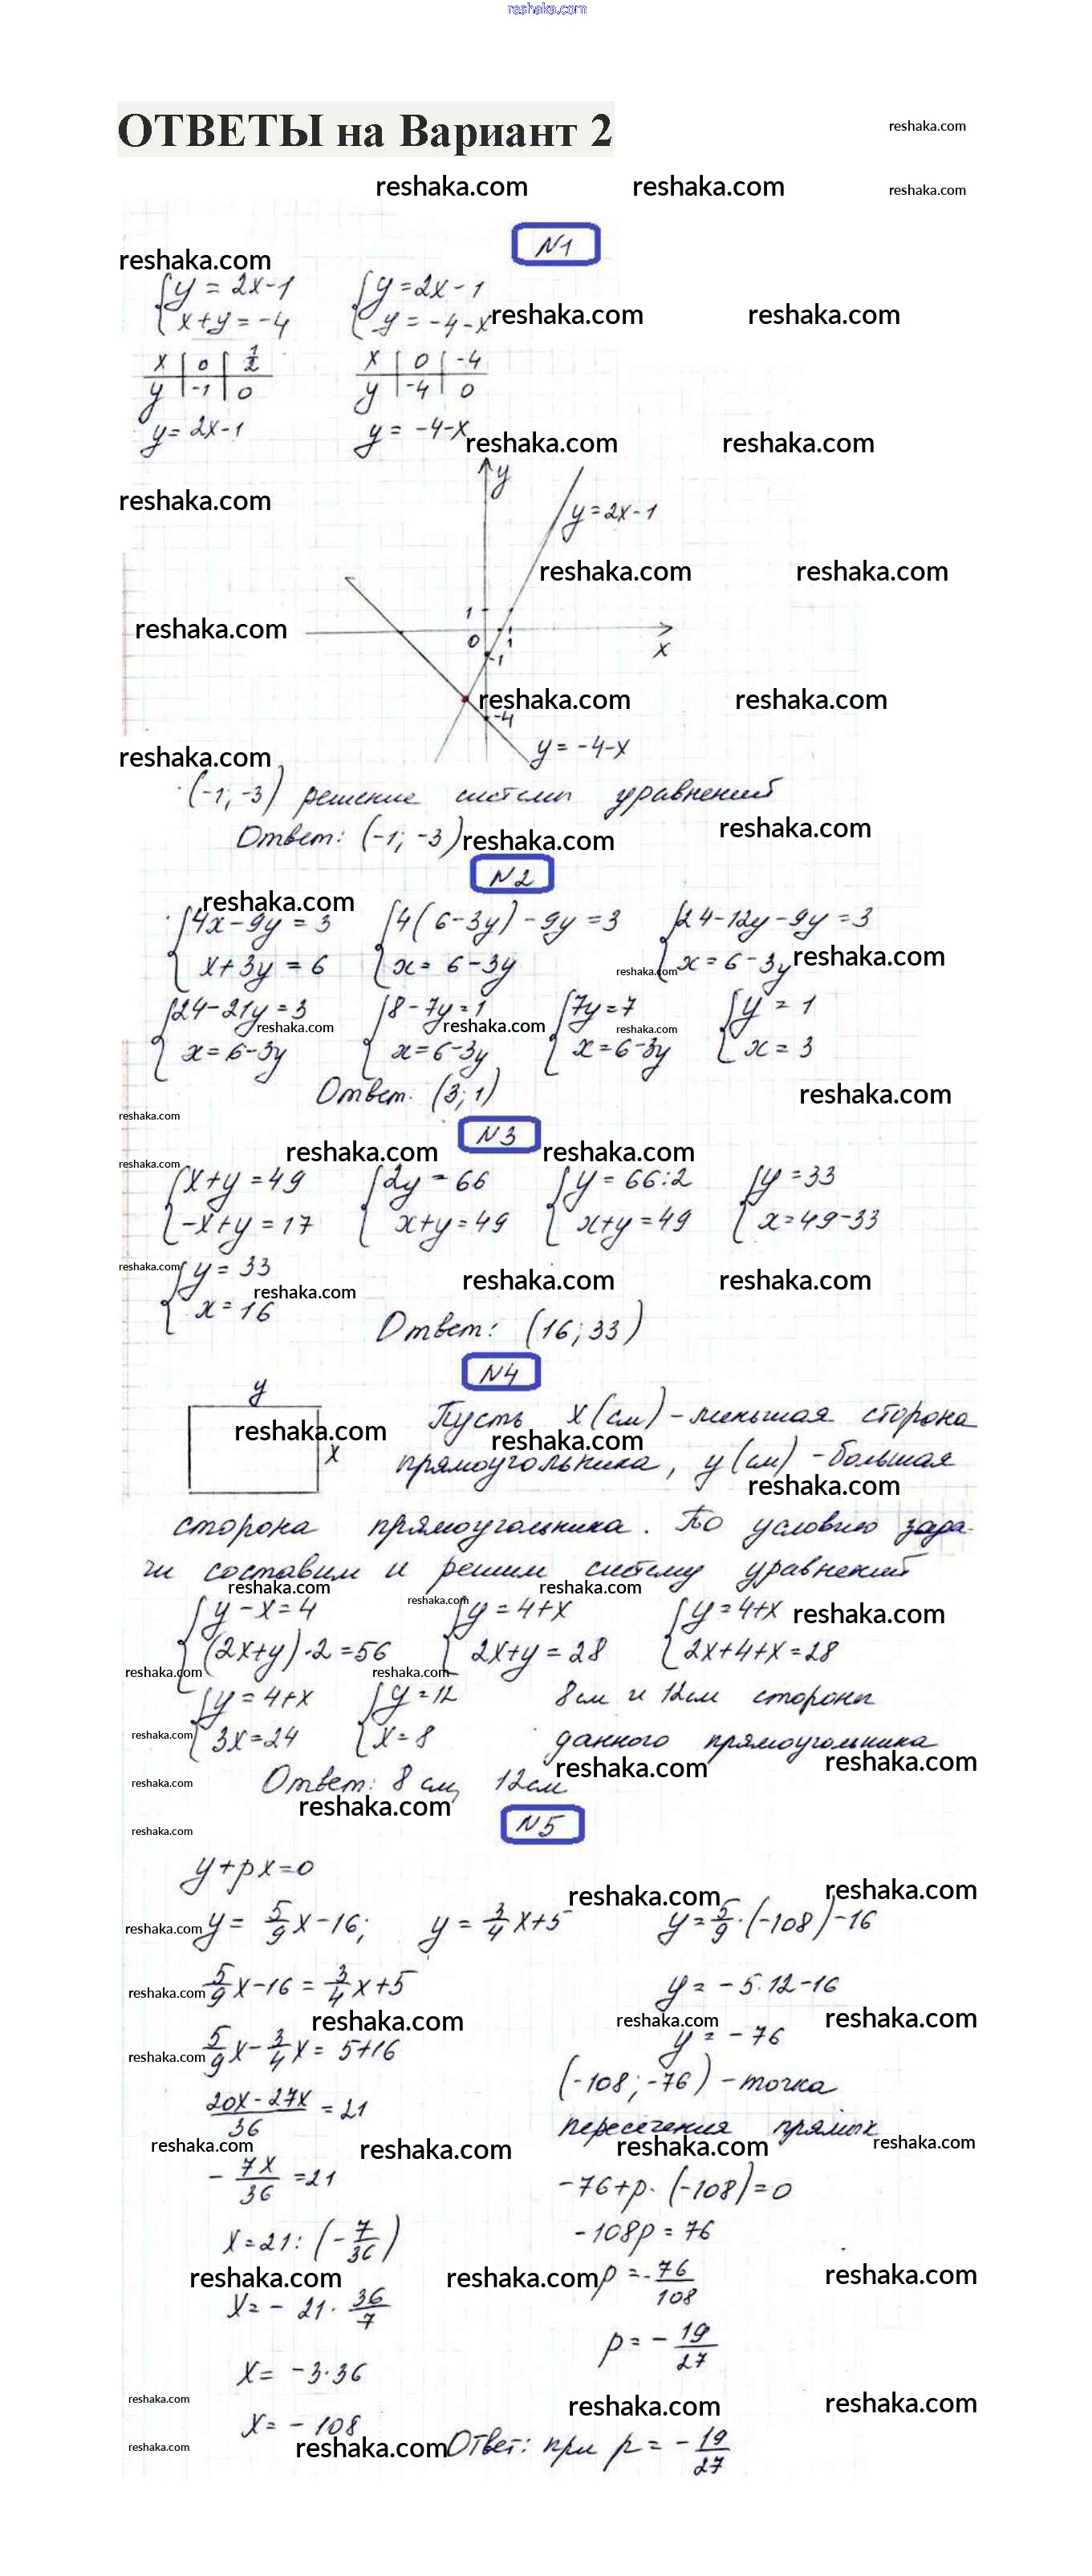 reshaka.com
ОТВЕТЫ на Вариант 2
reshaka.com
reshaka.com reshaka.com reshaka.com
N1
reshaka.com
{y = 2x-1 {y = 2x-1
{x+y = -4 {y = -4-x reshaka.com reshaka.com
x | 0 | 1/2 x | 0 | -4
y | -1 | 0 y | -4 | 0
y = 2x-1 y = -4-x reshaka.com reshaka.com
y
reshaka.com
y=2x-1
reshaka.com reshaka.com
1
reshaka.com 0 1 x
-1
reshaka.com reshaka.com
-4
y = -4-x
reshaka.com
(-1; -3) решение системы уравнений
Ответ: (-1; -3) reshaka.com reshaka.com
N2
reshaka.com
{4x-9y = 3 {4(6-3y)-9y = 3 {24-12y-9y = 3
{x+3y = 6 {x = 6-3y reshaka.com {x = 6-3y reshaka.com
{24-21y = 3 {8-7y = 1 {7y = 7 {y = 1
reshaka.com reshaka.com reshaka.com
{x = 6-3y {x = 6-3y {x = 6-3y {x = 3
Ответ. (3; 1) reshaka.com
reshaka.com
N3
reshaka.com reshaka.com reshaka.com
{x+y = 49 {2y = 66 {y = 66:2 {y = 33
{-x+y = 17 {x+y = 49 {x+y = 49 {x = 49-33
reshaka.com {y = 33
reshaka.com reshaka.com reshaka.com
{x = 16
Ответ: (16; 33)
N4
y
Пусть x (см) - меньшая сторона
reshaka.com reshaka.com
x прямоугольника, y (см) - большая
reshaka.com
сторона прямоугольника. По условию зада-
чи составим и решим систему уравнений
reshaka.com reshaka.com
reshaka.com
{y-x = 4 {y = 4+x {y = 4+x reshaka.com
{(2x+y)·2 = 56 {2x+y = 28 {2x+4+x = 28
reshaka.com reshaka.com
{y = 4+x {y = 12 8см и 12см стороны
reshaka.com {3x = 24 {x = 8 данного прямоугольника
reshaka.com reshaka.com
reshaka.com Ответ: 8 см, 12см
reshaka.com
N5
reshaka.com
y+px=0
reshaka.com reshaka.com
reshaka.com y = 5/9 x-16; y = 3/4 x+5 y = 5/9·(-108)-16
reshaka.com 5/9 x-16 = 3/4 x+5 y = -5·12-16
reshaka.com reshaka.com reshaka.com
reshaka.com 5/9 x - 3/4 x = 5+16 y = -76
(-108; -76) - точка
20x-27x/36 = 21
пересечения прямых
reshaka.com reshaka.com reshaka.com reshaka.com
- 7x/36 = 21 -76+p·(-108) = 0
x = 21:(-7/36) -108p = 76
reshaka.com reshaka.com p = -76/108 reshaka.com
x = -21· 36/7
p = - 19/27
x = -3·36
reshaka.com reshaka.com reshaka.com
x = -108
reshaka.com reshaka.com Ответ: при p = - 19/27